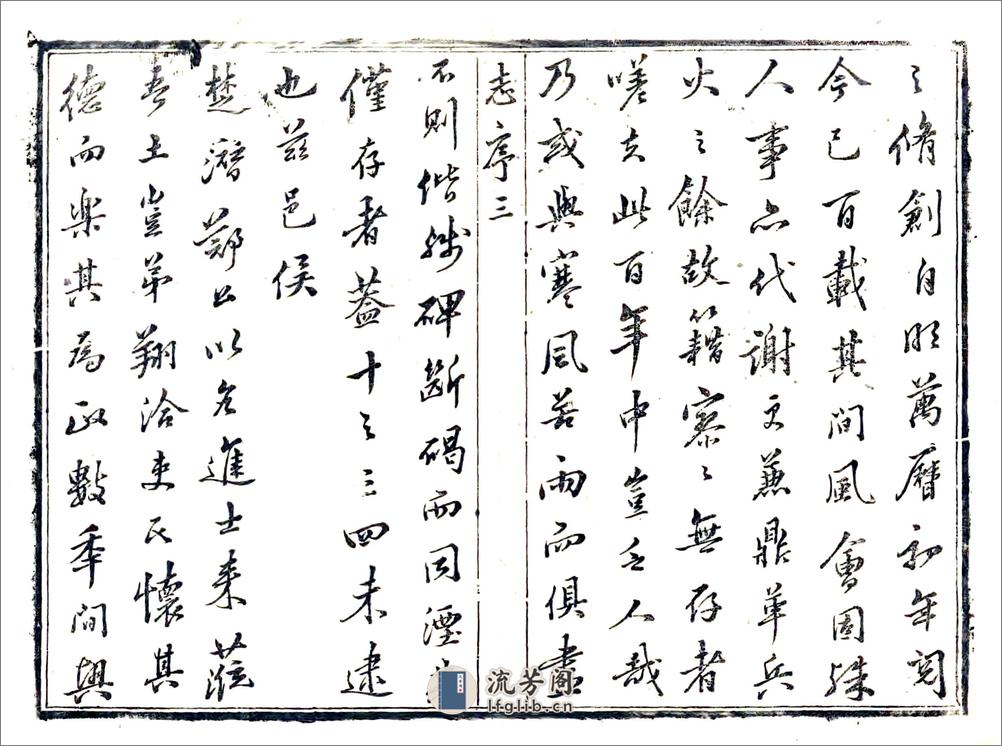 之脩創自明萬曆初年閱
今已百載其間風會固殊
人事亦代謝又兼鼎革兵
火之餘故籍寥寥無存者
嗟夫此百年中豈乏人哉
乃或與寒風苦雨而俱盡
志序三
不則偕殘碑斷碣而同湮
僅存者蓋十之三四未逮
也茲邑侯
楚潛鄭公以名進士来蒞
吾土豈弟翔洽吏民懷其
德而樂其為政數年間與
流芳阁
lfglib.cn